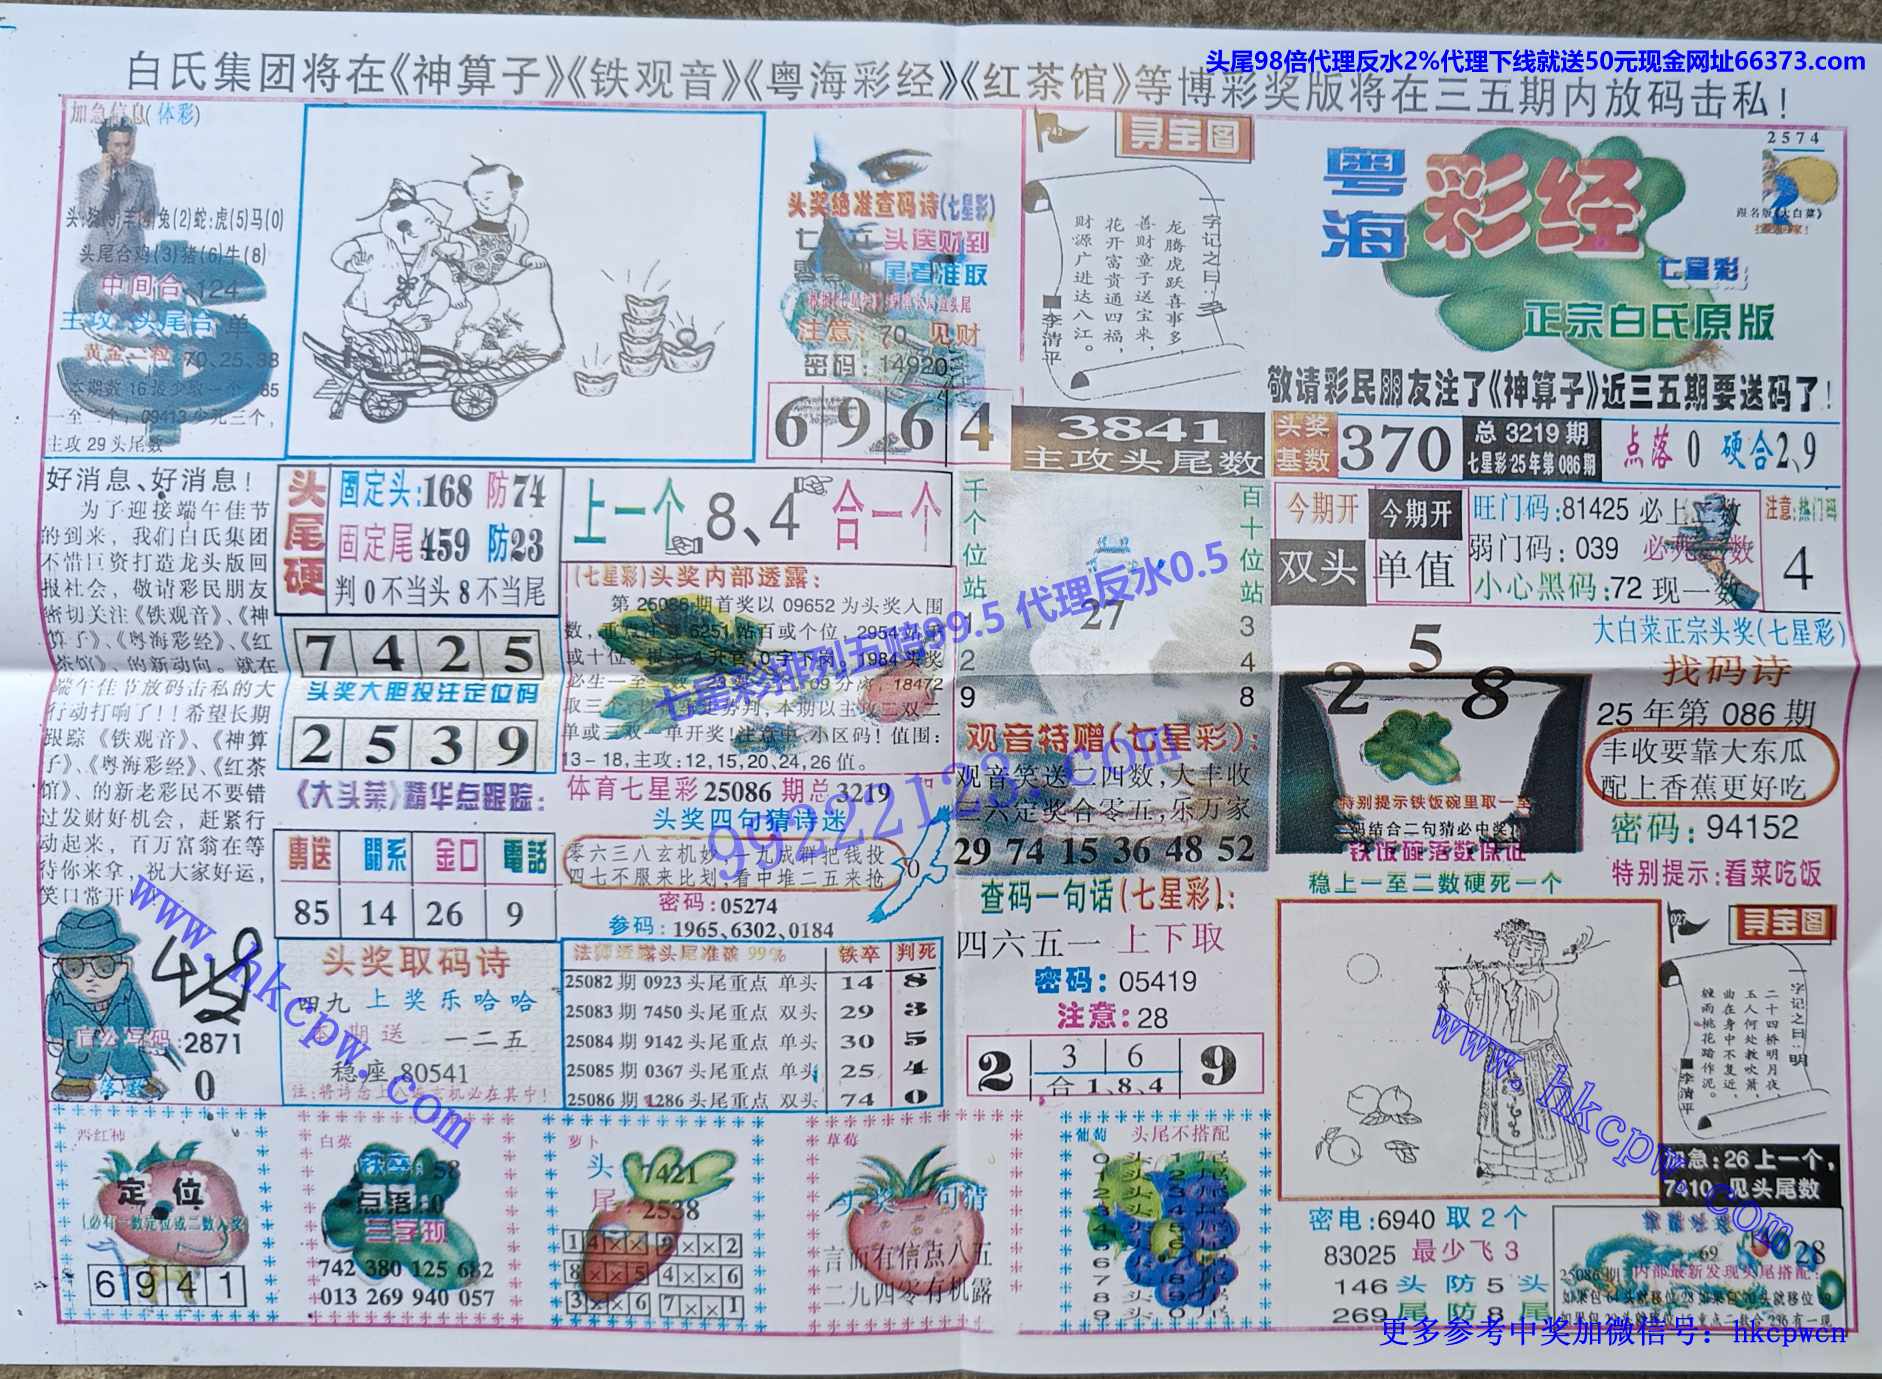 头尾98倍代理反水2%代理下线就送50元现金网址66373.com
白氏集团将在《神算子》《铁观音》《粤海彩经》《红茶馆》等博彩奖版将在三五期内放码击私！
加急信息(体彩)
头尾合鸡(3)猪(6)牛(8)
中间合:124
主攻:头尾合 单
主攻29头尾数
头奖绝准查码诗(七星彩)
头送财到
注意: 70 见财
密码: 14920
6 9 6 4
242
寻宝图
一字记之曰:多
龙腾虎跃喜事多,
善财童子送宝来,
花开富贵通四福,
财源广进达八江。
■李清平
3841
主攻头尾数
粤海彩经
2574
七星彩
正宗白氏原版
敬请彩民朋友注了《神算子》近三五期要送码了!
头奖基数
370
总3219期
七星彩25年第086期
点落0 硬合2、9
今期开
双头
今期开
单值
旺门码:81425
弱门码: 039
小心黑码:72 现一数
注意:热门码
4
大白菜正宗头奖(七星彩)
找码诗
25年第 086 期
丰收要靠大东瓜
配上香蕉更好吃
密码: 94152
特别提示:看菜吃饭
2 5 8
特别提示铁饭碗里取一至
铁饭碗落数保证
稳上一至二数硬死一个
好消息、好消息!
为了迎接端午佳节
的到来，我们白氏集团
不惜巨资打造龙头版回
报社会，敬请彩民朋友
密切关注《铁观音》、《神
算子》、《粤海彩经》、《红
茶馆》、的新动向。就在
端午佳节放码击私的大
行动打响了!!希望长期
跟踪《铁观音》、《神算
子》、《粤海彩经》、《红茶
馆》、的新老彩民不要错
过发财好机会，赶紧行
动起来，百万富翁在等
待你来拿，祝大家好运，
笑口常开
头尾硬
固定头:168 防74
固定尾 459 防23
判0不当头8不当尾
7 4 2 5
头奖大胆投注定位码
2 5 3 9
《大头菜》精华点跟踪:
傳送 關系 金口 電話
85 14 26 9
上一个 8、4 合一个
(七星彩)头奖内部透露:
第25086期首奖以09652为头奖入围
单或三双一单开奖!注意中小区码!值围:
13-18,主攻:12,15,20,24,26值。
体育七星彩25086期总3219
头奖四句猜诗迷
零六三八玄机妙,一九成群把钱投
四七不服来比划,看中堆二五来抢
0
密码:05274
参码: 1965、6302、0184
千个位站
1
2
9
27
百十位站
3
4
8
观音特赠(七星彩):
观音笑送一四数,大丰收
三六定奖合零五,乐万家
29 74 15 36 48 52
查码一句话(七星彩):
四六五一 上下取
密码: 05419
注意: 28
2 3 6 9
合1、8、4
头奖取码诗
四九 上奖乐哈哈
本期送 一二五
稳座 80541
2871
0
法师透露头尾准确 99% 铁卒 判死
25082期0923头尾重点 单头 14 8
25083期7450头尾重点 双头 29 3
25084期9142头尾重点 单头 30 5
25085期0367头尾重点 单头 25 4
25086期1286头尾重点 双头 74 0
027
寻宝图
一字记之曰:明
二十四桥明月夜,
玉人何处教吹箫,
曲在身中不复近,
缠雨桃花踏作泥。
■李清平
加急:26上一个,
7410 见头尾数
定位
6 9 4 1
白菜
铁卒: 58
点落:0
三字现
742 380 125 682
013 269 940 057
萝卜
头 7421
尾 2538
1 4 × × 9 × × 2
8 × × 5 4 × × 6
3 × × 6 7 × × 1
草莓
头奖二句猜
言而有信点八五
二九四零有机露
葡萄 头尾不搭配
密电:6940 取2个
83025 最少飞3
146 头 防 5 头
269 尾 防 8 尾
69
028
25086期 内部最新发现头尾搭配:
七星彩排列五赔99.5 代理反水0.5
99222123.com
www.hkcpw.com
www.hkcpw.com
更多参考中奖加微信号：hkcpwcn